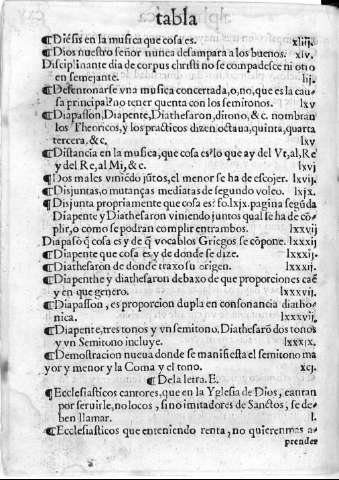 tabla
¶Diesis en la musica que cosa es. xliij.
¶Dios nuestro señor nunca desampara a los buenos. xlv.
Disciplinante dia de corpus christi no se compadesce ni otro
en semejante. lij.
¶Desentonarse vna musica concertada, o, no, que es la cau-
sa principal? no tener quenta con los semitonos. lxv
¶Diapasson, Diapente, Diathesaron, ditono, & c. nombran
los Theoricos, y los practicos dizen octaua, quinta, quarta
tercera, & c. lxv
¶Distancia en la musica, que cosa es? lo que ay del Vt, al, Re
y del Re, al, Mi, & c. lxvj
¶Dos males viniẽdo jũtos, el menor se ha de escojer. lxvij.
¶Disjuntas, o mutanças mediatas de segundo voleo. lxjx.
¶Disjunta propriamente que cosa es? fo. lxjx. pagina segũda
Diapente y Diathesaron viniendo juntos qual se ha de cõ-
plir, o como se podran cumplir entrambos. lxxvij
Diapasõ q̃ cosa es y de q̃ vocablos Griegos se cõpone. lxxxij
¶Diapente que cosa es y de donde se dize. lxxxij.
¶Diathesaron de donde traxo su origen. lxxxij.
¶Diapenthe y diathesaron debaxo de que proporciones caẽ
y en que genero. lxxxvij.
¶Diapasson, es proporcion dupla en consonancia diatho-
nica. lxxxvij.
¶Diapente, tres tonos y vn semitono. Diathesarõ dos tonos
y vn Semitono incluye. lxxxix.
¶Demostracion nueua donde se manifiesta el semitono ma
yor y menor y la Coma y el tono. xcj.
¶De la letra. E.
¶Ecclesiasticos cantores, que en la Yglesia de Dios, cantan
por seruirle, no locos, sino imitadores de Sanctos, se de-
ben llamar. l.
¶Ecclesiasticos que enteniendo renta, no quieren mas a-
prender